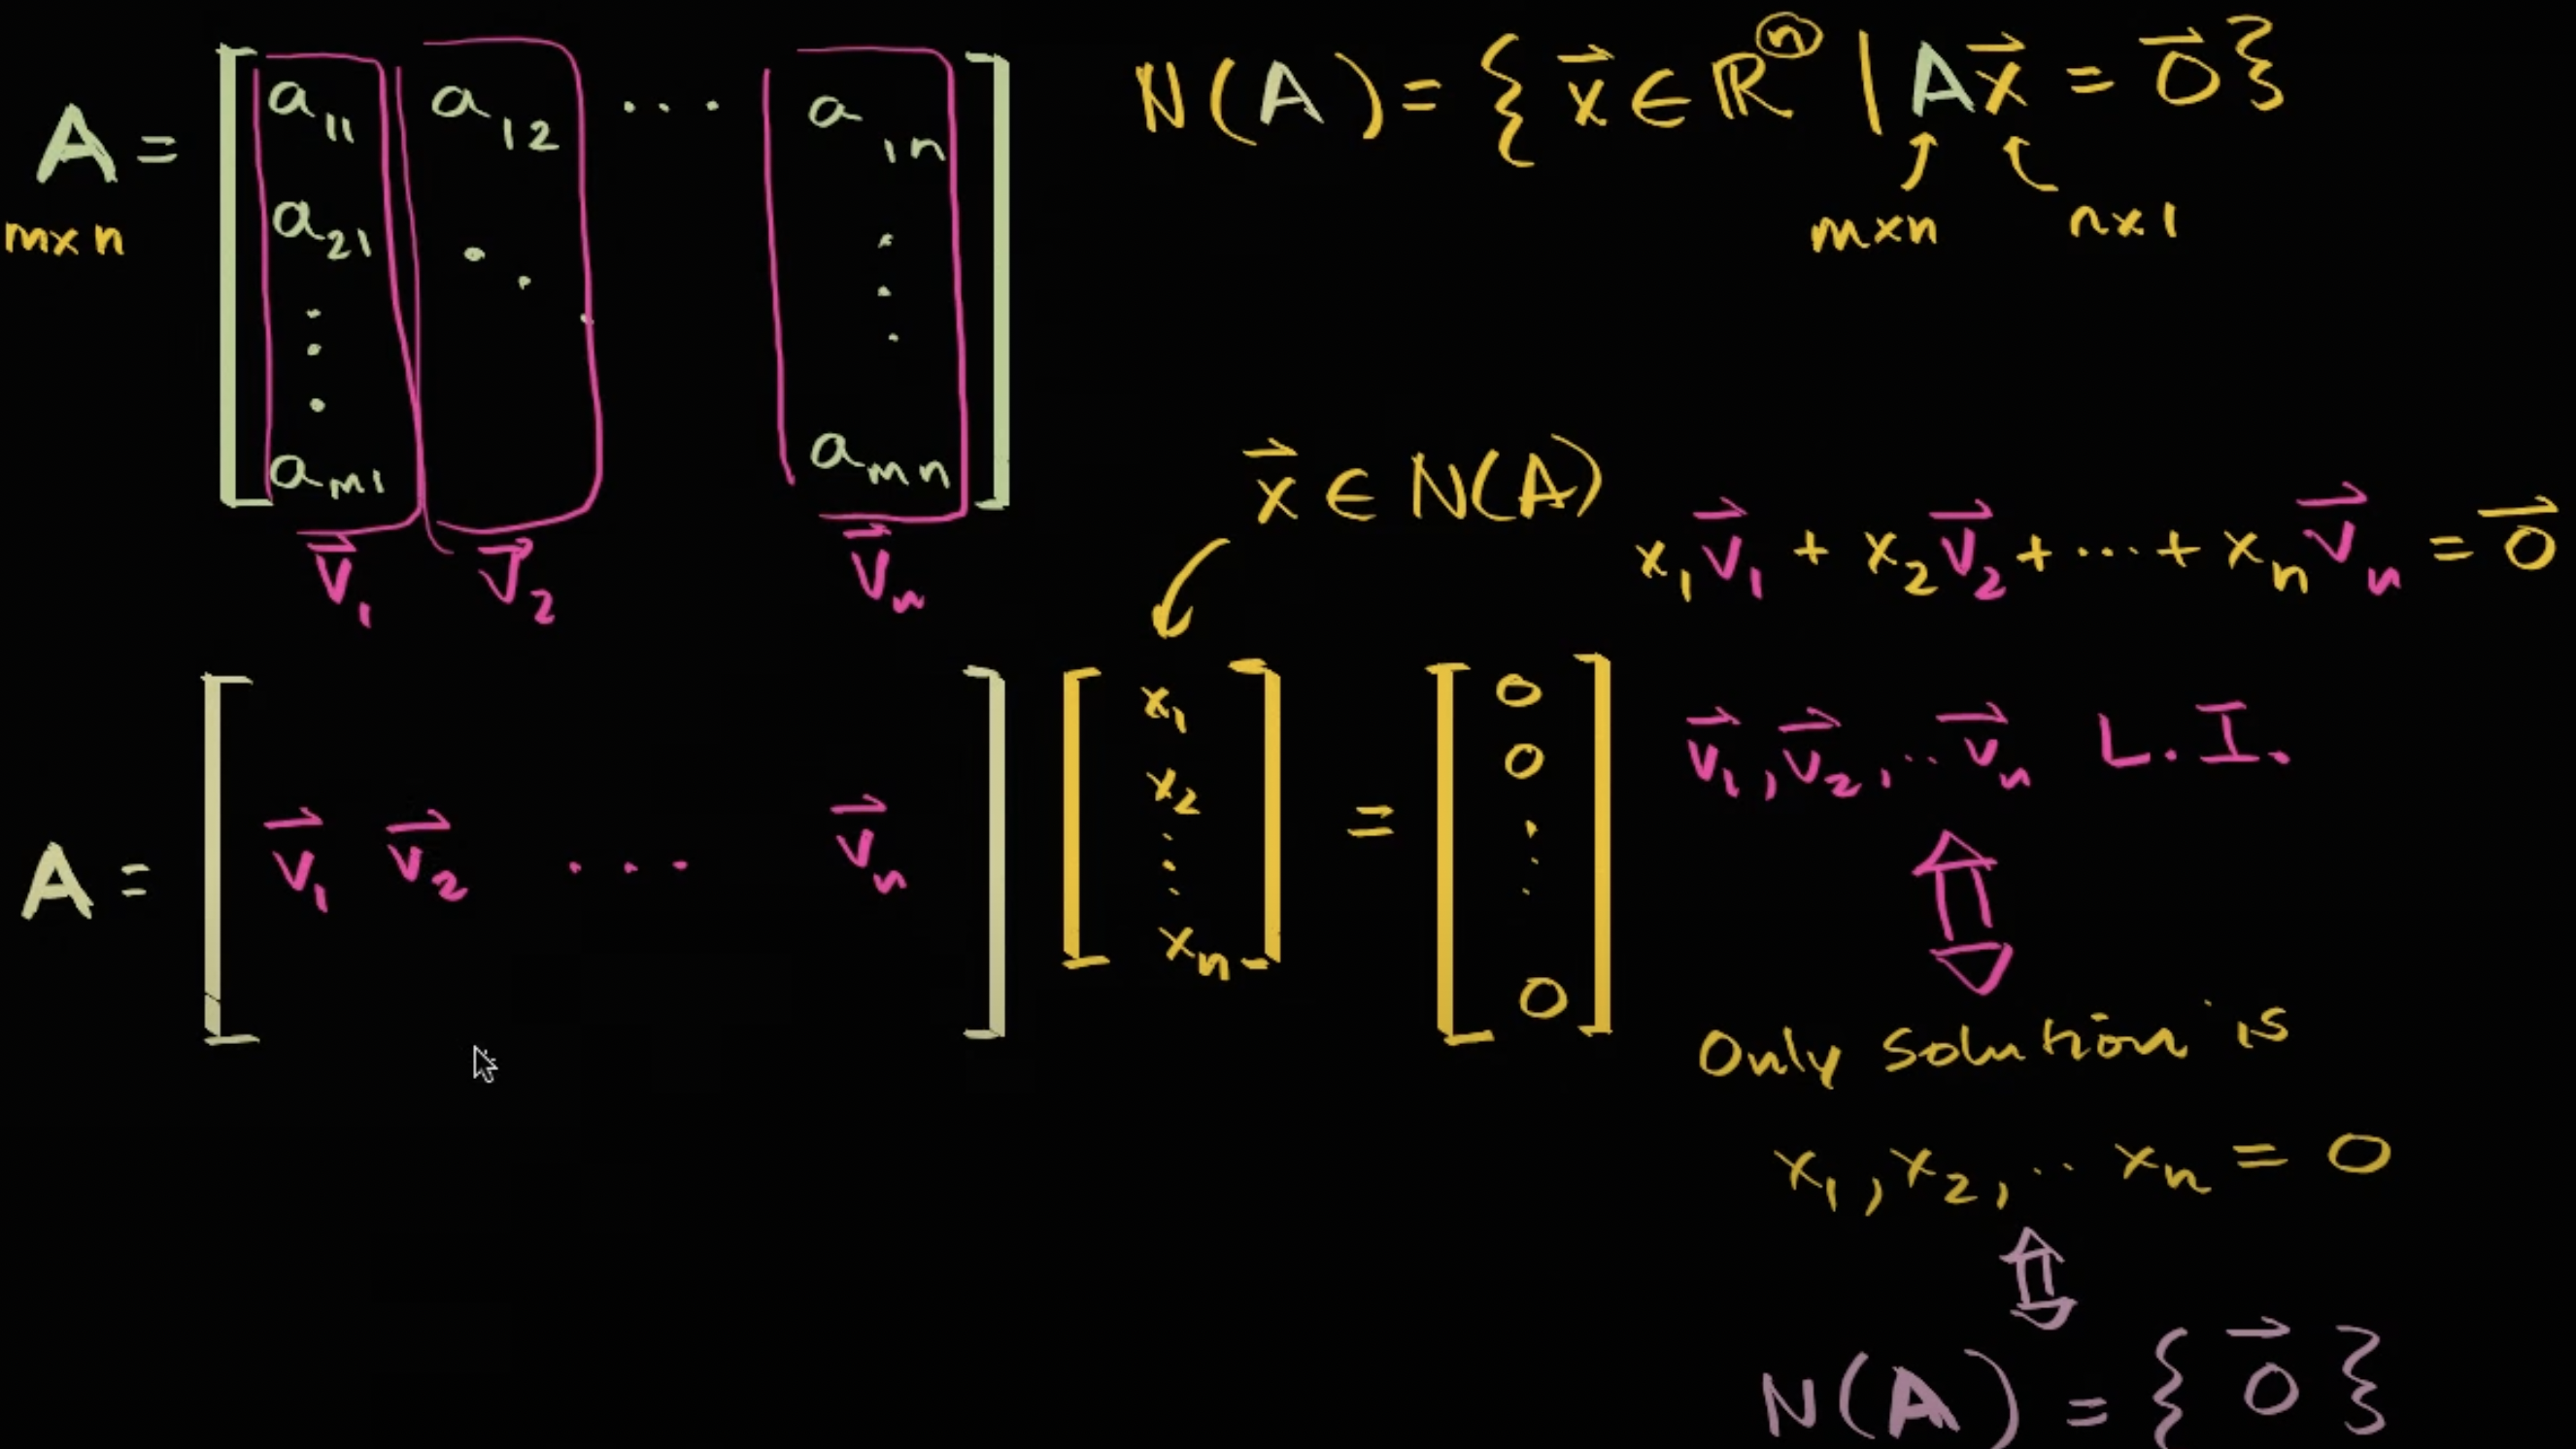 A = [ a11 a12 ... a1n
m×n a21 ⋱ ⋮
⋮
am1 amn ]
v⃗1 v⃗2 v⃗n
N(A) = { x⃗ ∈ ℝⁿ | Ax⃗ = 0⃗ }
m×n n×1
x⃗ ∈ N(A)
x1v⃗1 + x2v⃗2 + ... + xnv⃗n = 0⃗
A = [ v⃗1 v⃗2 ... v⃗n ] [ x1 x2 ⋮ xn ] = [ 0 0 ⋮ 0 ]
v⃗1, v⃗2, .. v⃗n L.I.
⇕
Only solution is
x1, x2, .. xn = 0
⇕
N(A) = { 0⃗ }